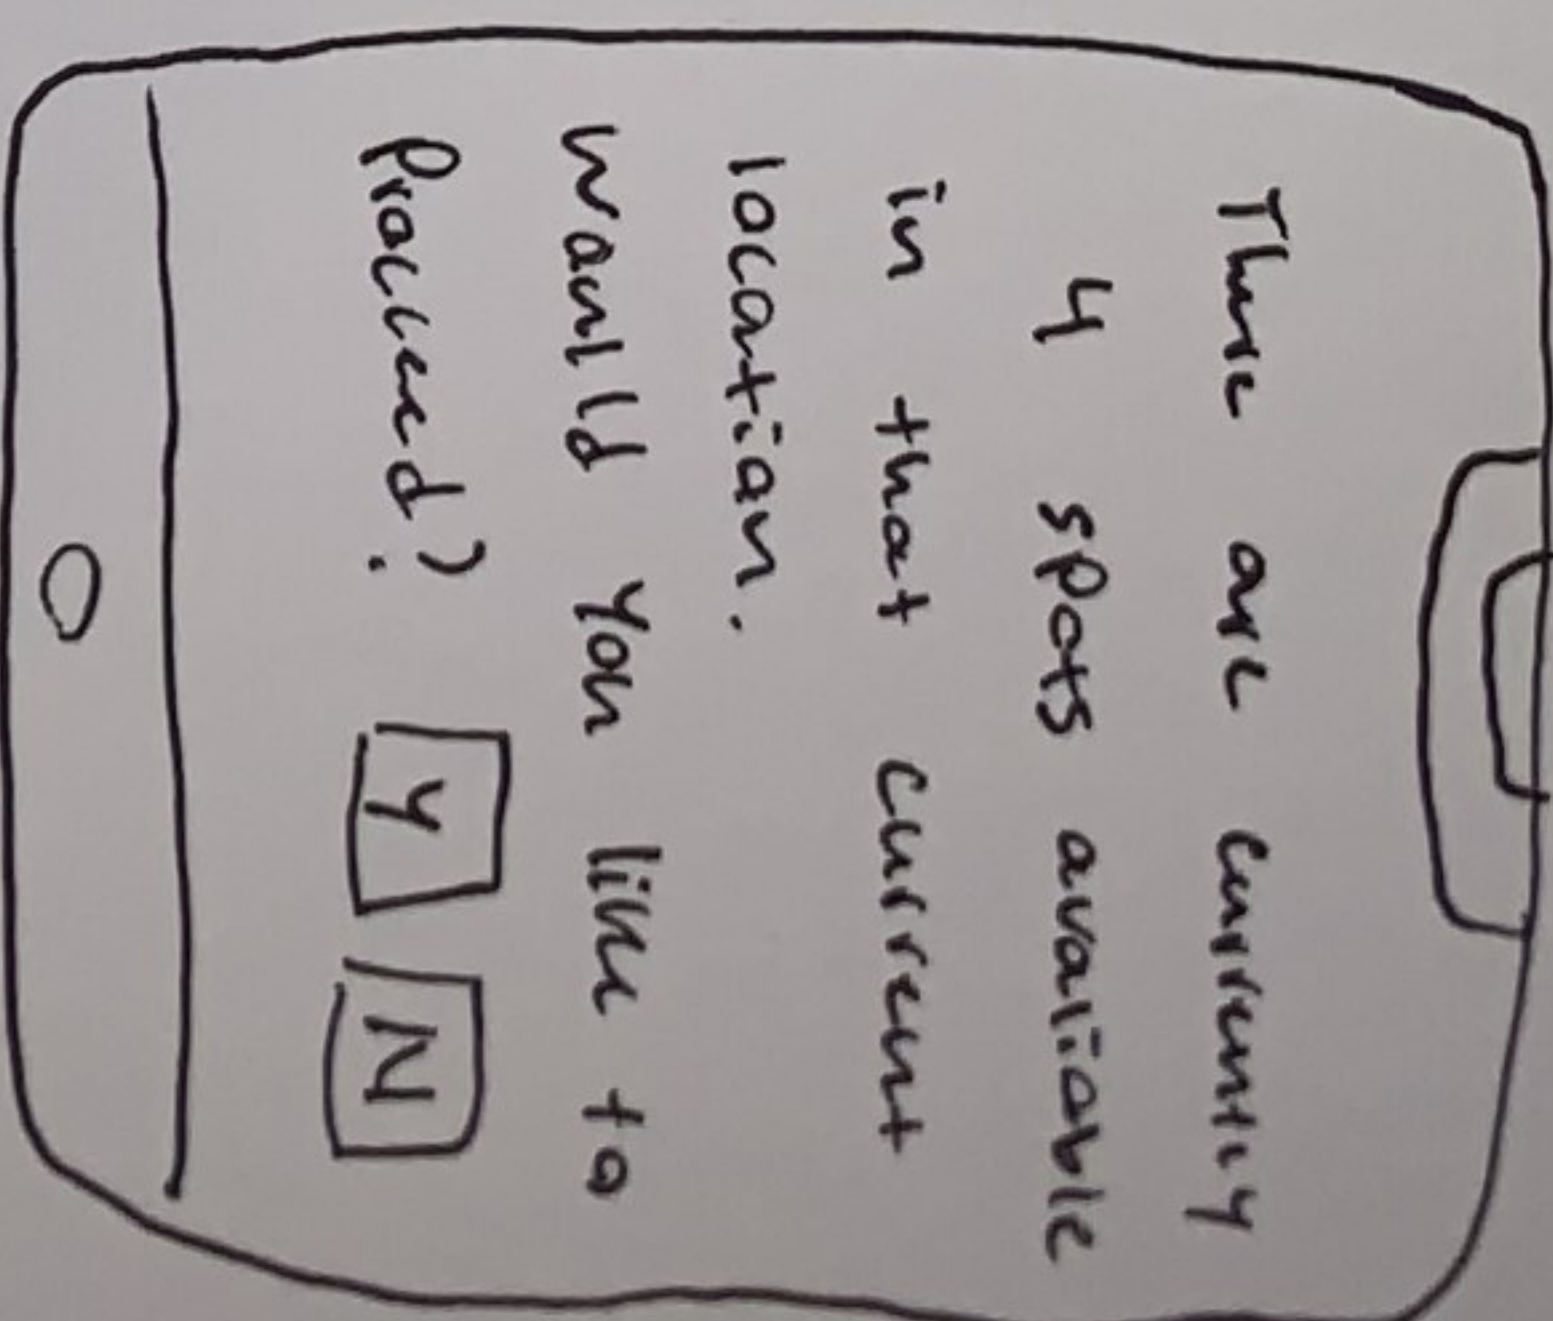 There are currently
4 spots avaliable
in that current
location.
Would you like to
Proceed? Y N